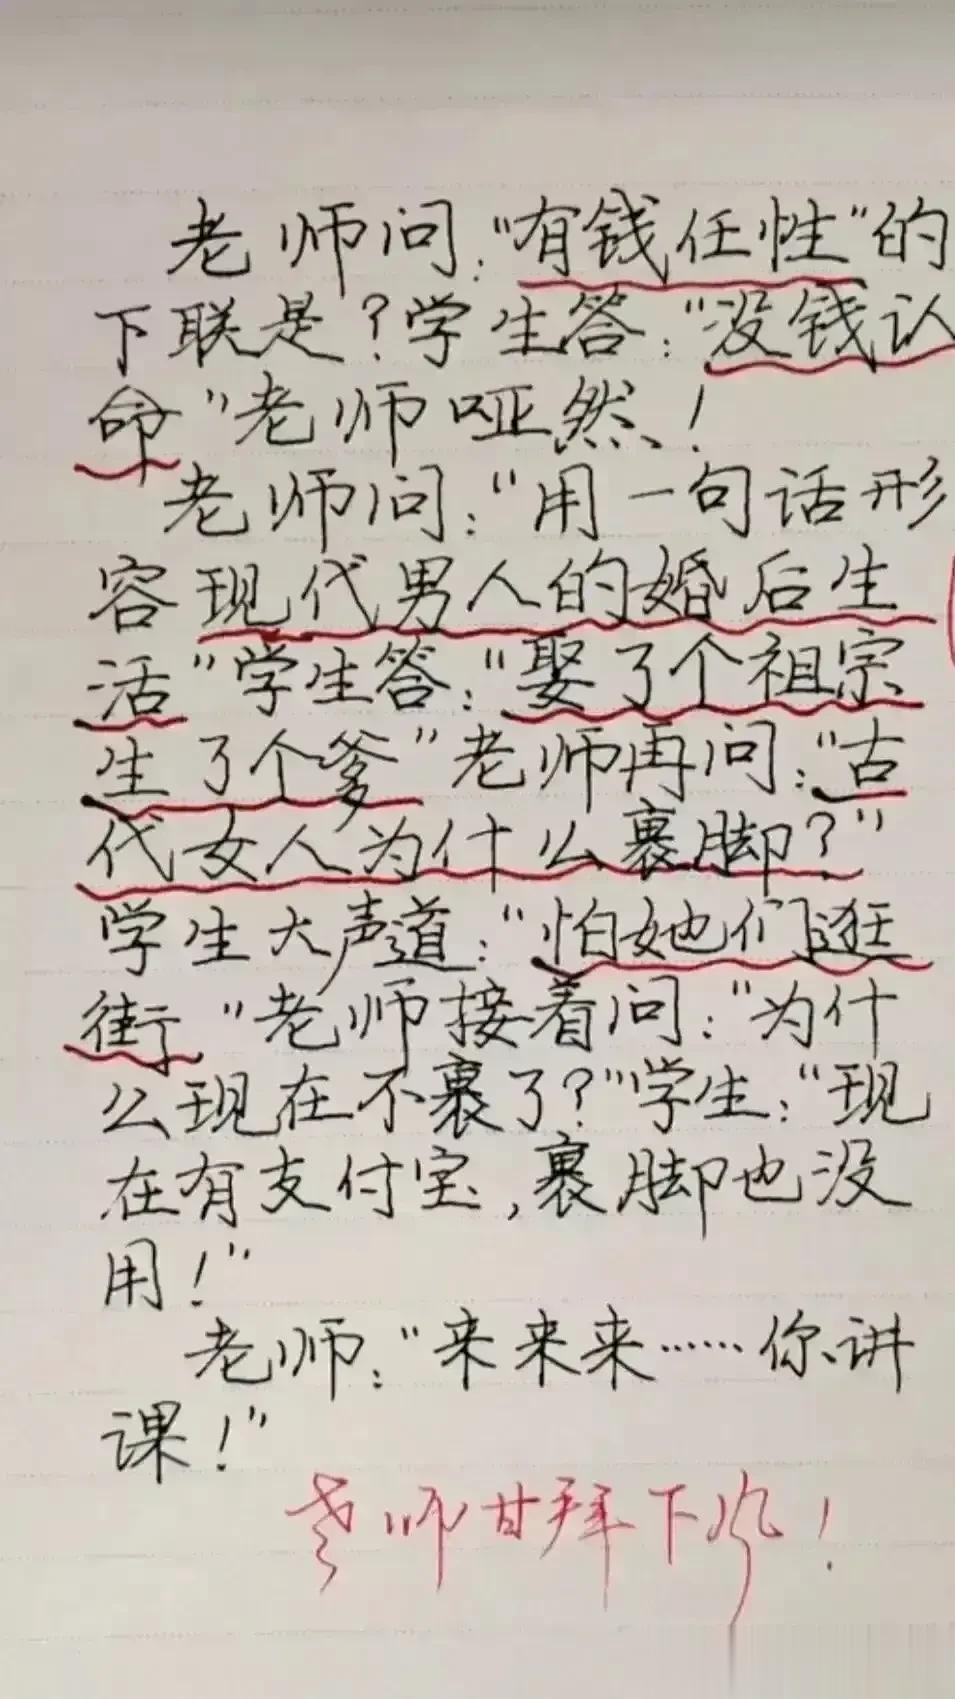 老师问:"有钱任性"的
下联是?学生答:"没钱认
命"老师哑然!
老师问:"用一句话形
容现代男人的婚后生
活"学生答:"娶了个祖宗
生了个爹"老师再问:"古
代女人为什么裹脚?"
学生大声道:"怕她们逛
街"老师接着问:"为什
么现在不裹了?"学生:"现
在有支付宝,裹脚也没
用!"
老师:"来来来……你讲
课!"
老师甘拜下风!